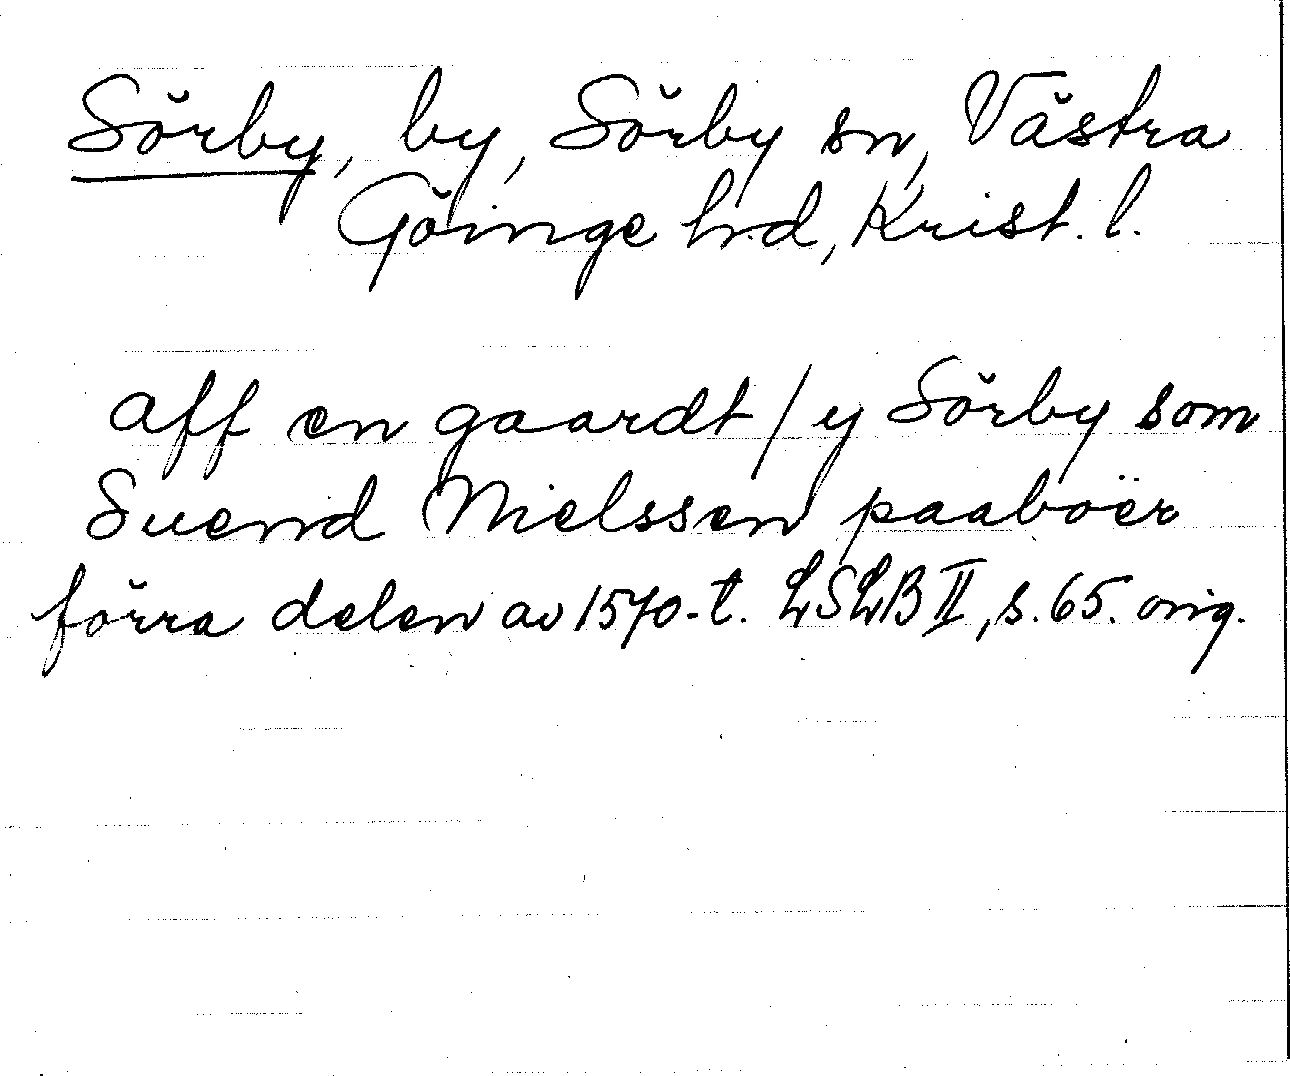 Sörby, by, Sörby sn, Västra
Göinge hrd, Krist. l.
aff en gaardt / y Sörby som
Suend Nielssen paaboër
förra delen av 1570-t. LSLB II, s. 65. orig.